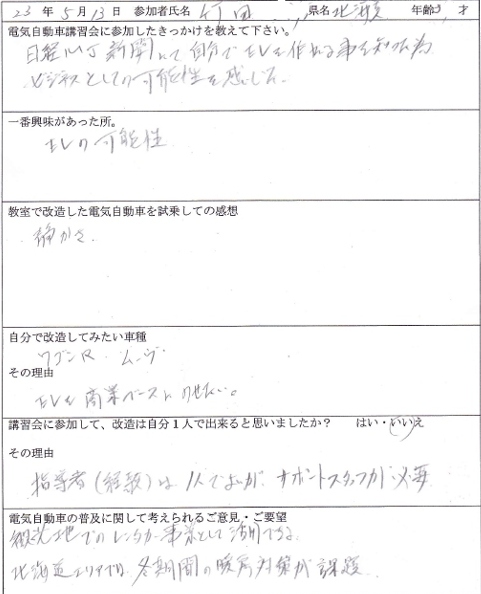 23 年 5月 13日 参加者氏名 竹田 県名 北海道 年齢 才
電気自動車講習会に参加したきっかけを教えて下さい。
日経MJ新聞にて自分でEVを作れる事を知った為
ビジネスとしての可能性を感じた。
一番興味があった所。
EVの可能性
教室で改造した電気自動車を試乗しての感想
静かさ.
自分で改造してみたい車種
ワゴンR . ムーヴ.
その理由
EVを商業ベースにのせたい。
講習会に参加して、改造は自分1人で出来ると思いましたか? はい・いいえ
その理由
指導者(経験)は1人でよいが、サポートスタッフが必要
電気自動車の普及に関して考えられるご意見・ご要望
観光地でのレンタカー事業として活用できる.
北海道エリアでは、冬期間の暖房対策が課題.